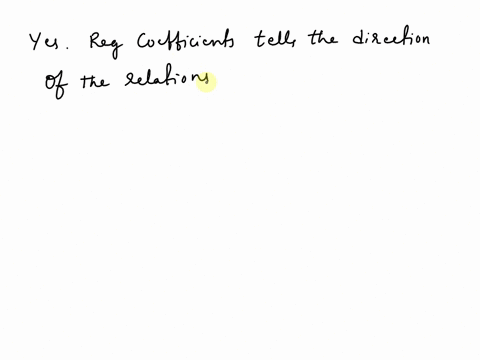 Yes. Reg Coefficients tells the direction
of the relations